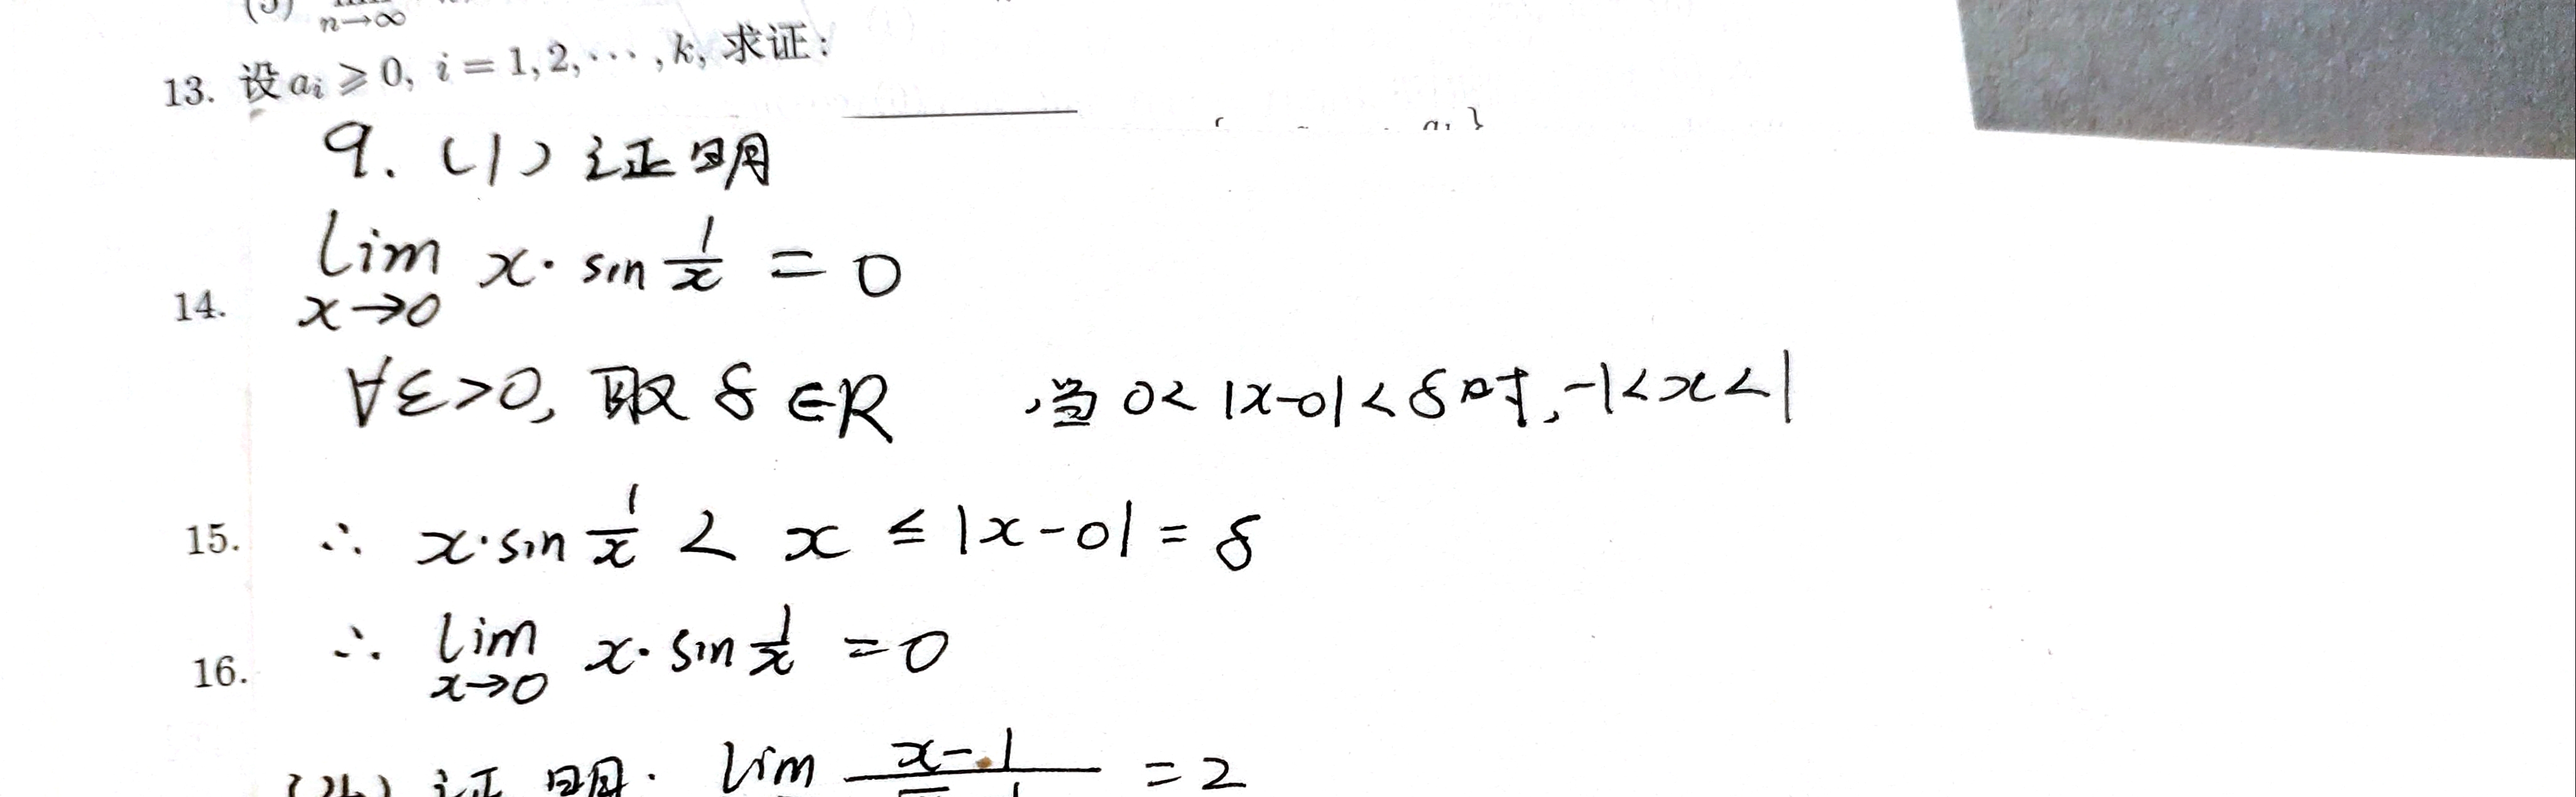 n→∞
13. 设 aᵢ ⩾ 0, i = 1, 2, ⋯ , k, 求证:
9. (1) 证明
lim x→0 x· sin 1/x = 0
14.
∀ε>0, 取 δ ∈R ,当 0< |x-0| < δ 时, -1<x<1
15. ∴ x·sin 1/x < x ≤ |x-0| = δ
16. ∴ lim x→0 x· sin 1/x =0
证明. lim x-1 =2